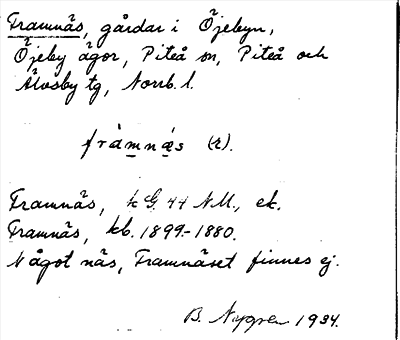 Framnäs, gårdar i Öjebyn,
Öjeby ägor, Piteå sn, Piteå och
Älvsby tg, Norrb. l.
fràmnä́s (r).
Framnäs, k G. 44 N.M., ek.
Framnäs, kb. 1899-1880.
Något näs, Framnäset finnes ej.
B. Nygren 1934.